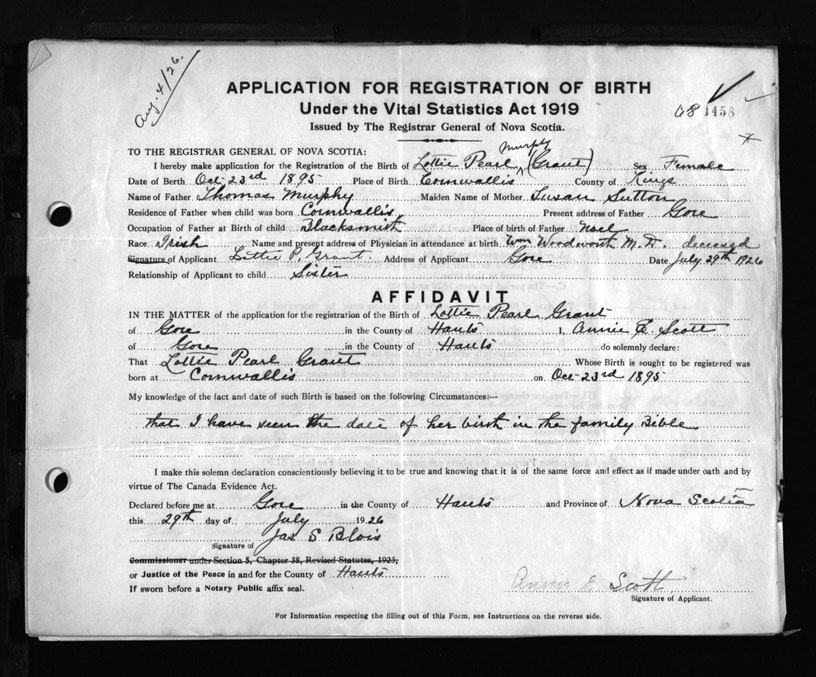 Aug. 4/26.
APPLICATION FOR REGISTRATION OF BIRTH
Under the Vital Statistics Act 1919
Issued by The Registrar General of Nova Scotia.
1458
TO THE REGISTRAR GENERAL OF NOVA SCOTIA:
Murphy
I hereby make application for the Registration of the Birth of Lottie Pearl (Grant) Sex Female
Date of Birth Oct 23rd 1895 Place of Birth Cornwallis County of Kings
Name of Father Thomas Murphy Maiden Name of Mother Susan Sutton
Residence of Father when child was born Cornwallis Present address of Father Gore
Occupation of Father at Birth of child Blacksmith Place of birth of Father Noel
Race Irish Name and present address of Physician in attendance at birth Wm Woodworth M.D. deceased
Signature of Applicant Lottie P. Grant. Address of Applicant Gore Date July 29th 1926
Relationship of Applicant to child Sister
AFFIDAVIT
IN THE MATTER of the application for the registration of the Birth of Lottie Pearl Grant
of Gore in the County of Hants I, Annie E. Scott
of Gore in the County of Hants do solemnly declare:
That Lottie Pearl Grant Whose Birth is sought to be registered was
born at Cornwallis on Oct 23rd 1895
My knowledge of the fact and date of such Birth is based on the following Circumstances:—
that I have seen the date of her birth in the family Bible
I make this solemn declaration conscientiously believing it to be true and knowing that it is of the same force and effect as if made under oath and by
virtue of The Canada Evidence Act.
Declared before me at Gore in the County of Hants and Province of Nova Scotia
this 29th day of July 1926
Signature of Jas S Blois
Commissioner under Section 5, Chapter 38, Revised Statutes, 1923,
or Justice of the Peace in and for the County of Hants
If sworn before a Notary Public affix seal.
Annie E Scott
Signature of Applicant.
For Information respecting the filling out of this Form, see Instructions on the reverse side.